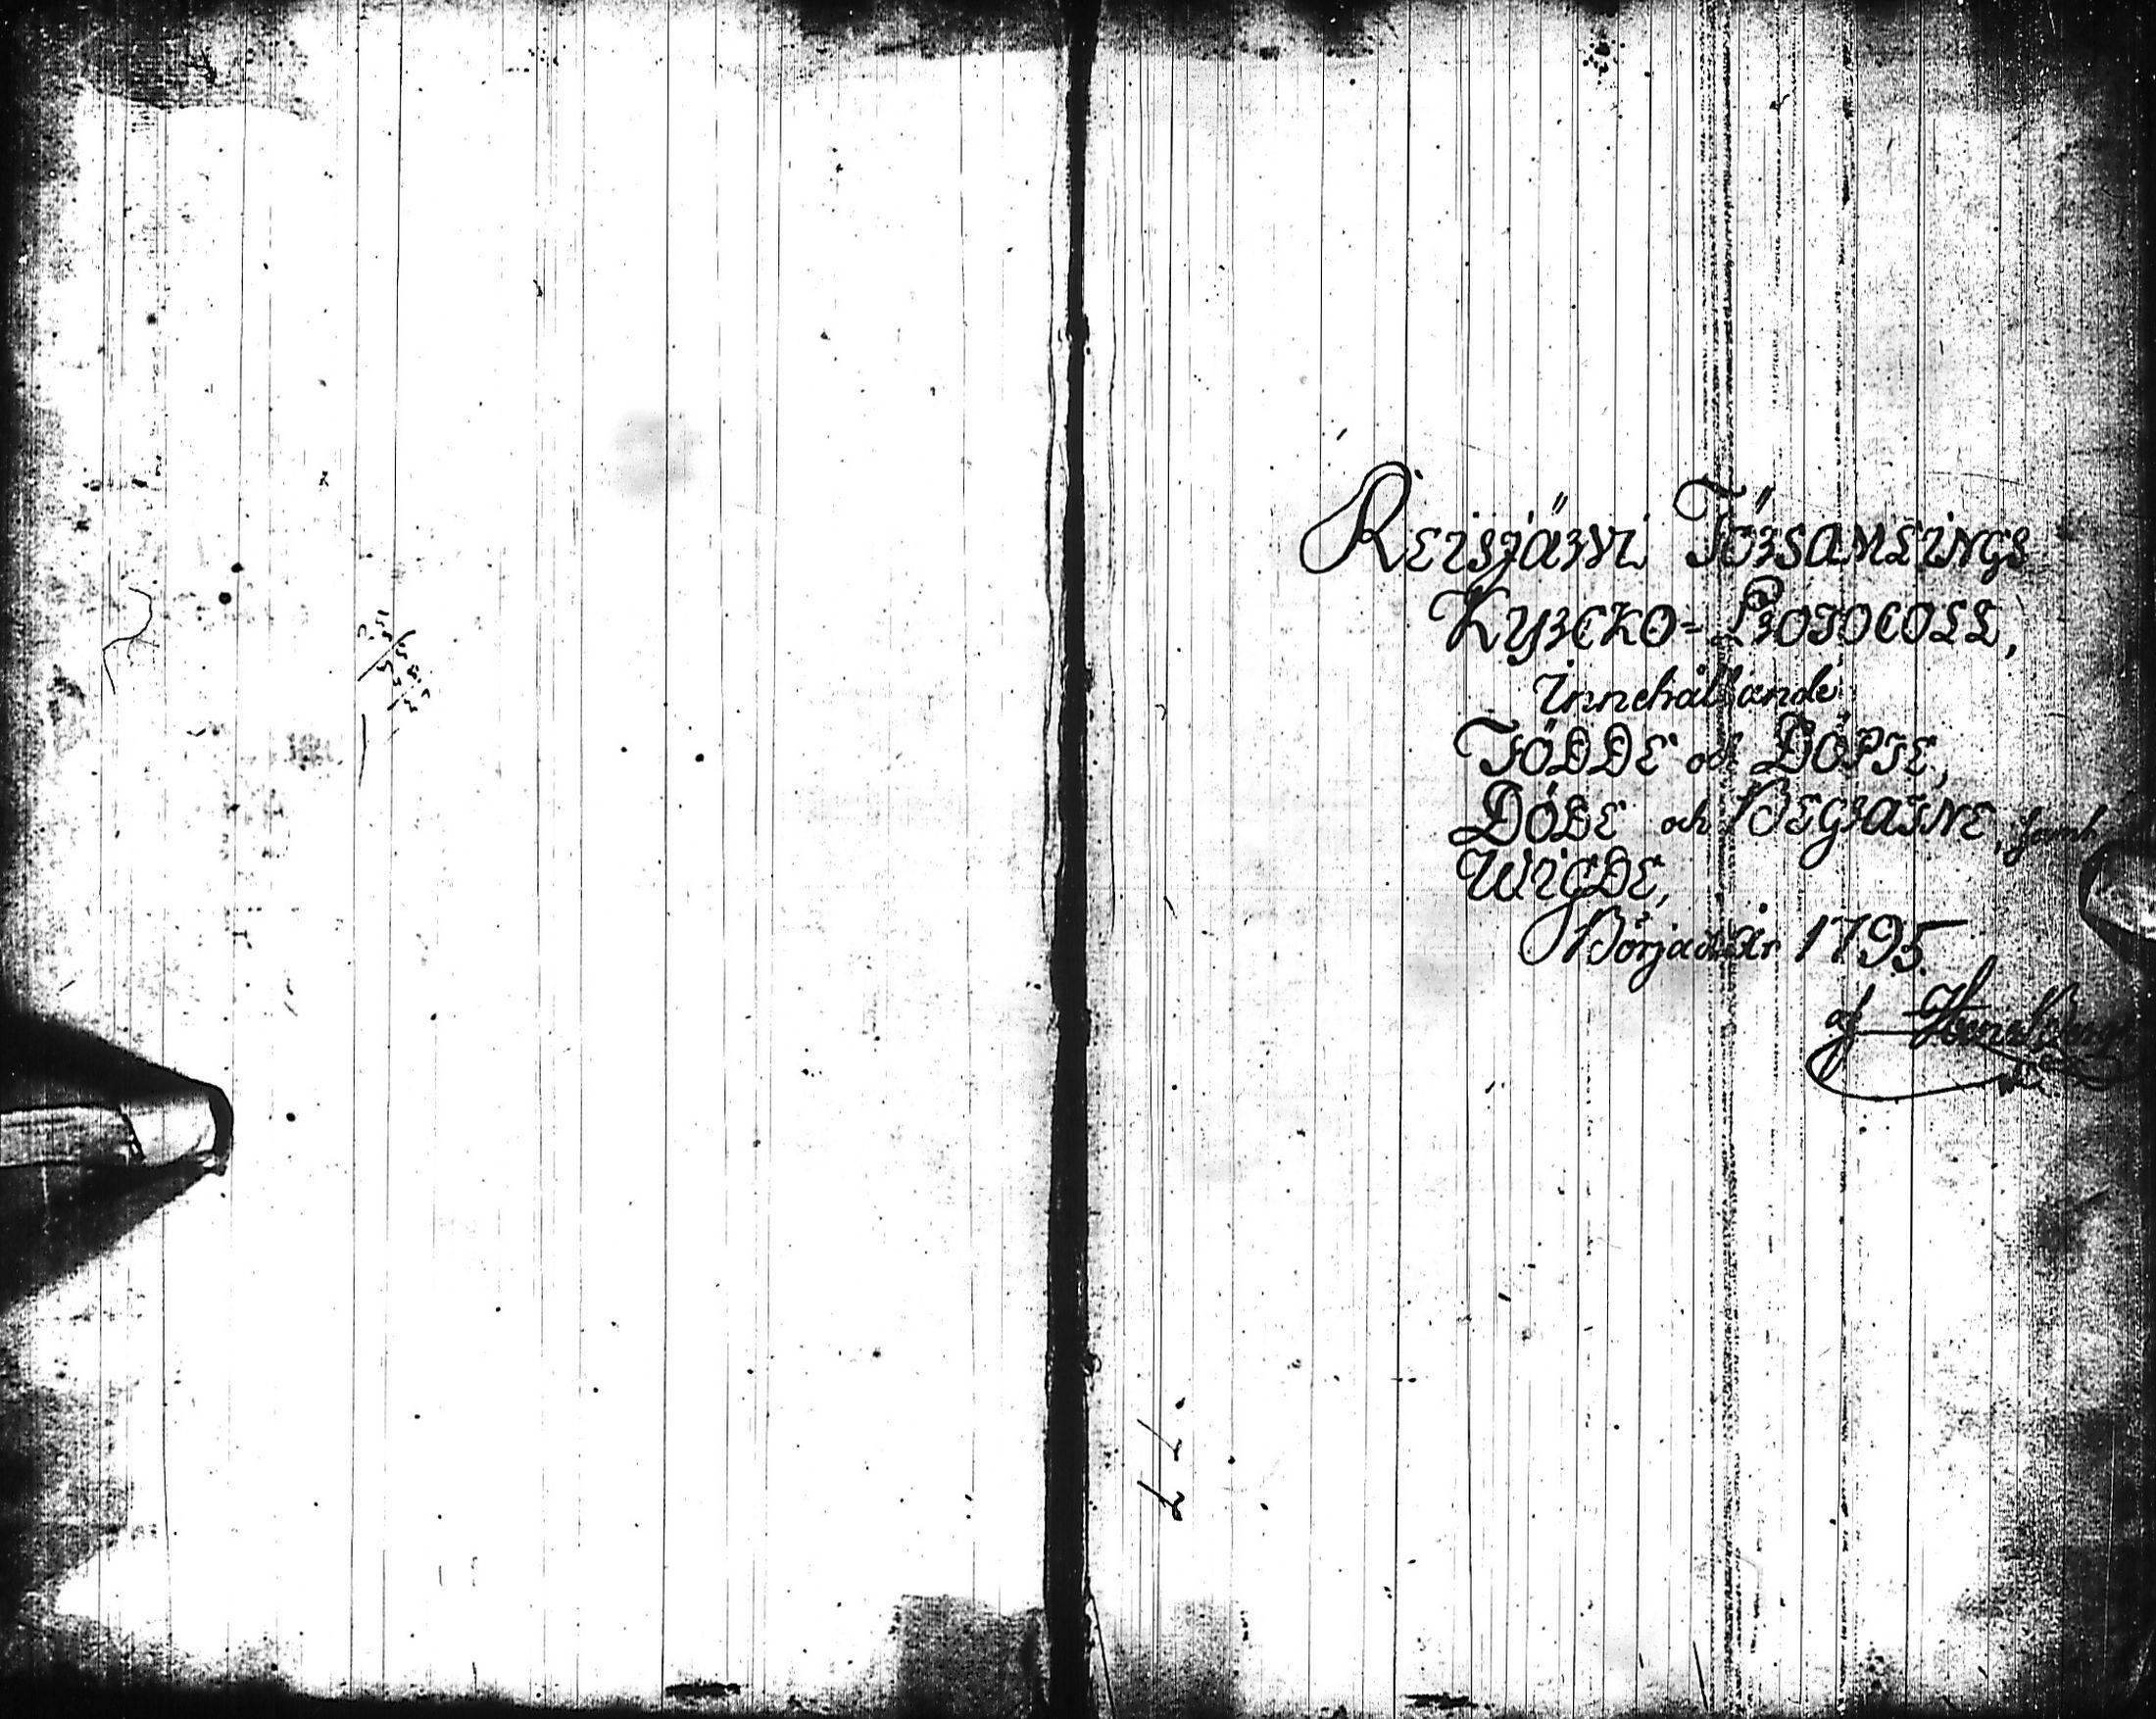 Reisjärvi Församlings
Kyrcko-Protocoll,
innehållande
Födde och Döpte,
Döde och Begrafne, samt
Wigde,
Börjadt År 1795.
af